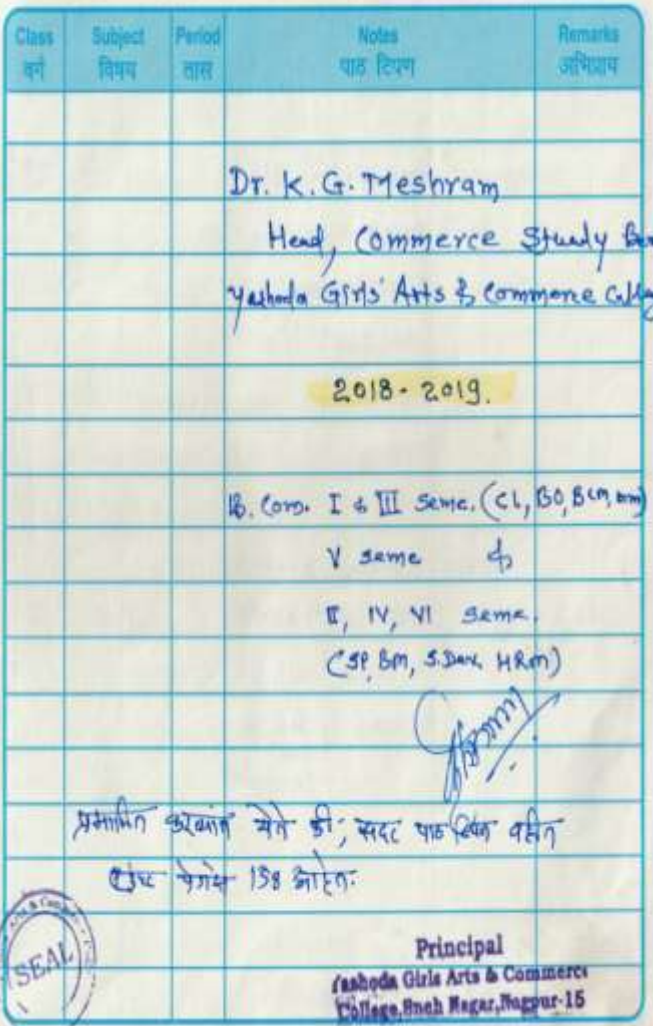 Class Subject Period Notes Remarks
वर्ग विषय तास पाठ टिपण अभिप्राय
Dr. K. G. Meshram
Head, Commerce Study
Yashoda Girls' Arts & Commerce
2018-2019.
B. Com. I & III Seme. (CL, BO, BCM,
V seme &
II, IV, VI Seme.
(SP, BM, S.Dev, HRM)
प्रमाणित करण्यांत येते की, सदर पाठ टिपण वहीत
पेजेस 158 आहेत.
Arts & Com
SEAL
Principal
Yashoda Girls Arts & Commerce
College, Sneh Nagar, Nagpur-15